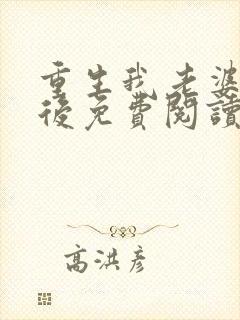 重生我老婆
後免費閱讀
高洪彥